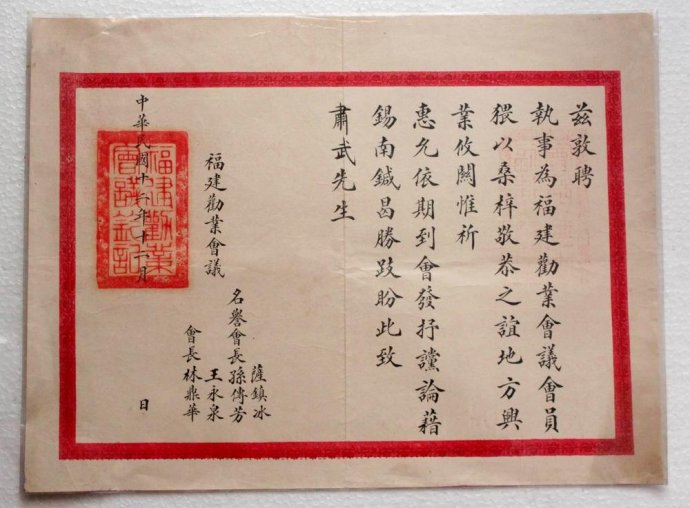 茲敦聘
執事為福建勸業會議會員
猥以桑梓敬恭之誼地方興
業攸關惟祈
惠允依期到會發抒讜論藉
錫南鍼曷勝跂盼此致
肅武先生
福建勸業會議
薩鎮冰
名譽會長孫傳芳
王永泉
會長林鼎華
中華民國十二年十一月 日
福建勸業
會議鈐記